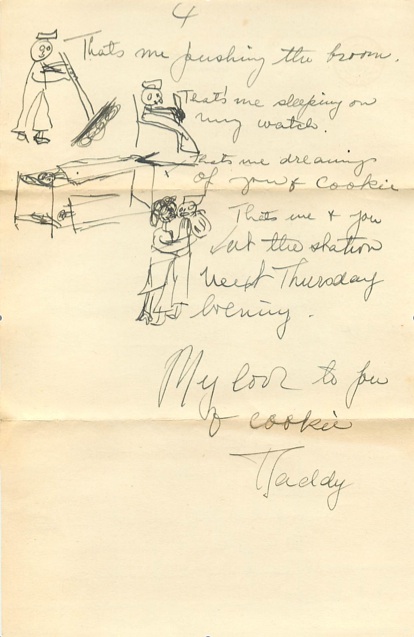 4
That's me pushing the broom.
That's me sleeping on
my watch.
That's me dreaming
of you & cookie
That's me & you
at the station
next Thursday
evening.
My love to you
& cookie
Taddy